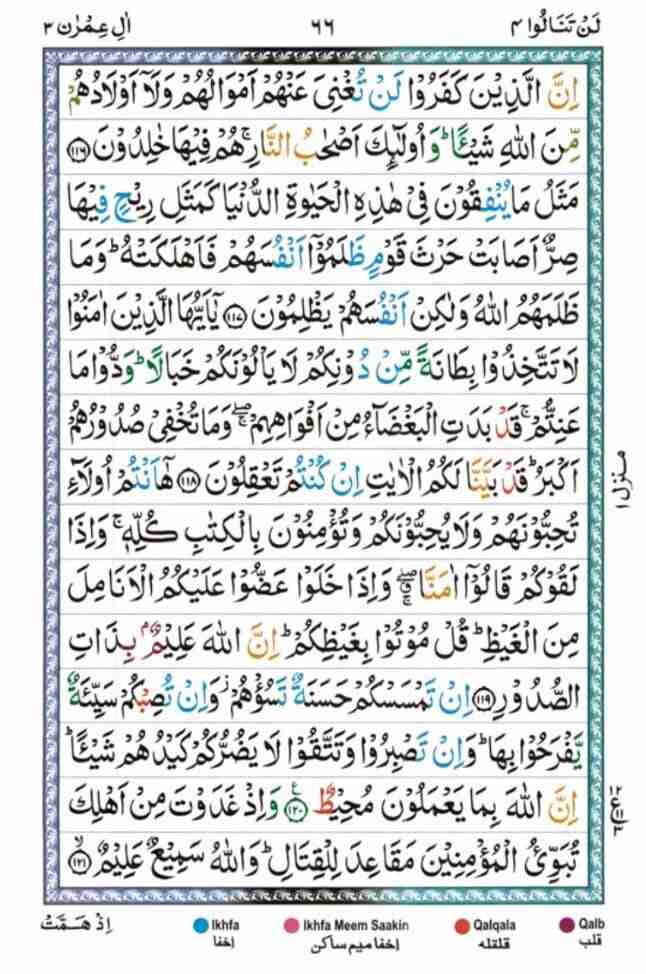 لَنْ تَنَالُوا ۴ ۶۶ اٰلِ عِمْرٰن ۳
اِنَّ الَّذِيْنَ كَفَرُوْا لَنْ تُغْنِىَ عَنْهُمْ اَمْوَالُهُمْ وَلَاۤ اَوْلَادُهُمْ
مِّنَ اللّٰهِ شَيْـًٔا ؕ وَ اُولٰٓئِكَ اَصْحٰبُ النَّارِ ۚ هُمْ فِيْهَا خٰلِدُوْنَ ﴿۱۱۶﴾
مَثَلُ مَا يُنْفِقُوْنَ فِىْ هٰذِهِ الْحَيٰوةِ الدُّنْيَا كَمَثَلِ رِيْحٍ فِيْهَا
صِرٌّ اَصَابَتْ حَرْثَ قَوْمٍ ظَلَمُوْۤا اَنْفُسَهُمْ فَاَهْلَكَتْهُ ؕ وَمَا
ظَلَمَهُمُ اللّٰهُ وَلٰكِنْ اَنْفُسَهُمْ يَظْلِمُوْنَ ﴿۱۱۷﴾ يٰۤاَيُّهَا الَّذِيْنَ اٰمَنُوْا
لَا تَتَّخِذُوْا بِطَانَةً مِّنْ دُوْنِكُمْ لَا يَاْلُوْنَكُمْ خَبَالًا ؕ وَدُّوْا مَا
عَنِتُّمْ ۚ قَدْ بَدَتِ الْبَغْضَآءُ مِنْ اَفْوَاهِهِمْ ۖۚ وَمَا تُخْفِىْ صُدُوْرُهُمْ
اَكْبَرُ ؕ قَدْ بَيَّنَّا لَكُمُ الْاٰيٰتِ اِنْ كُنْتُمْ تَعْقِلُوْنَ ﴿۱۱۸﴾ هٰۤاَنْتُمْ اُولَآءِ
تُحِبُّوْنَهُمْ وَلَا يُحِبُّوْنَكُمْ وَتُؤْمِنُوْنَ بِالْكِتٰبِ كُلِّهٖ ۚ وَاِذَا
لَقُوْكُمْ قَالُوْۤا اٰمَنَّا ۖۗ وَاِذَا خَلَوْا عَضُّوْا عَلَيْكُمُ الْاَنَامِلَ
مِنَ الْغَيْظِ ؕ قُلْ مُوْتُوْا بِغَيْظِكُمْ ؕ اِنَّ اللّٰهَ عَلِيْمٌۢ بِذَاتِ
الصُّدُوْرِ ﴿۱۱۹﴾ اِنْ تَمْسَسْكُمْ حَسَنَةٌ تَسُؤْهُمْ ۫ وَاِنْ تُصِبْكُمْ سَيِّئَةٌ
يَّفْرَحُوْا بِهَا ؕ وَاِنْ تَصْبِرُوْا وَتَتَّقُوْا لَا يَضُرُّكُمْ كَيْدُهُمْ شَيْـًٔا ؕ
اِنَّ اللّٰهَ بِمَا يَعْمَلُوْنَ مُحِيْطٌ ﴿۱۲۰﴾ وَاِذْ غَدَوْتَ مِنْ اَهْلِكَ
تُبَوِّئُ الْمُؤْمِنِيْنَ مَقَاعِدَ لِلْقِتَالِ ؕ وَاللّٰهُ سَمِيْعٌ عَلِيْمٌ ﴿۱۲۱﴾ ۙ
منزل ۱
اِذْ هَمَّتْ
Ikhfa Ikhfa Meem Saakin Qalqala Qalb
اِخفا اِخفا میم ساکن قلقله قلب